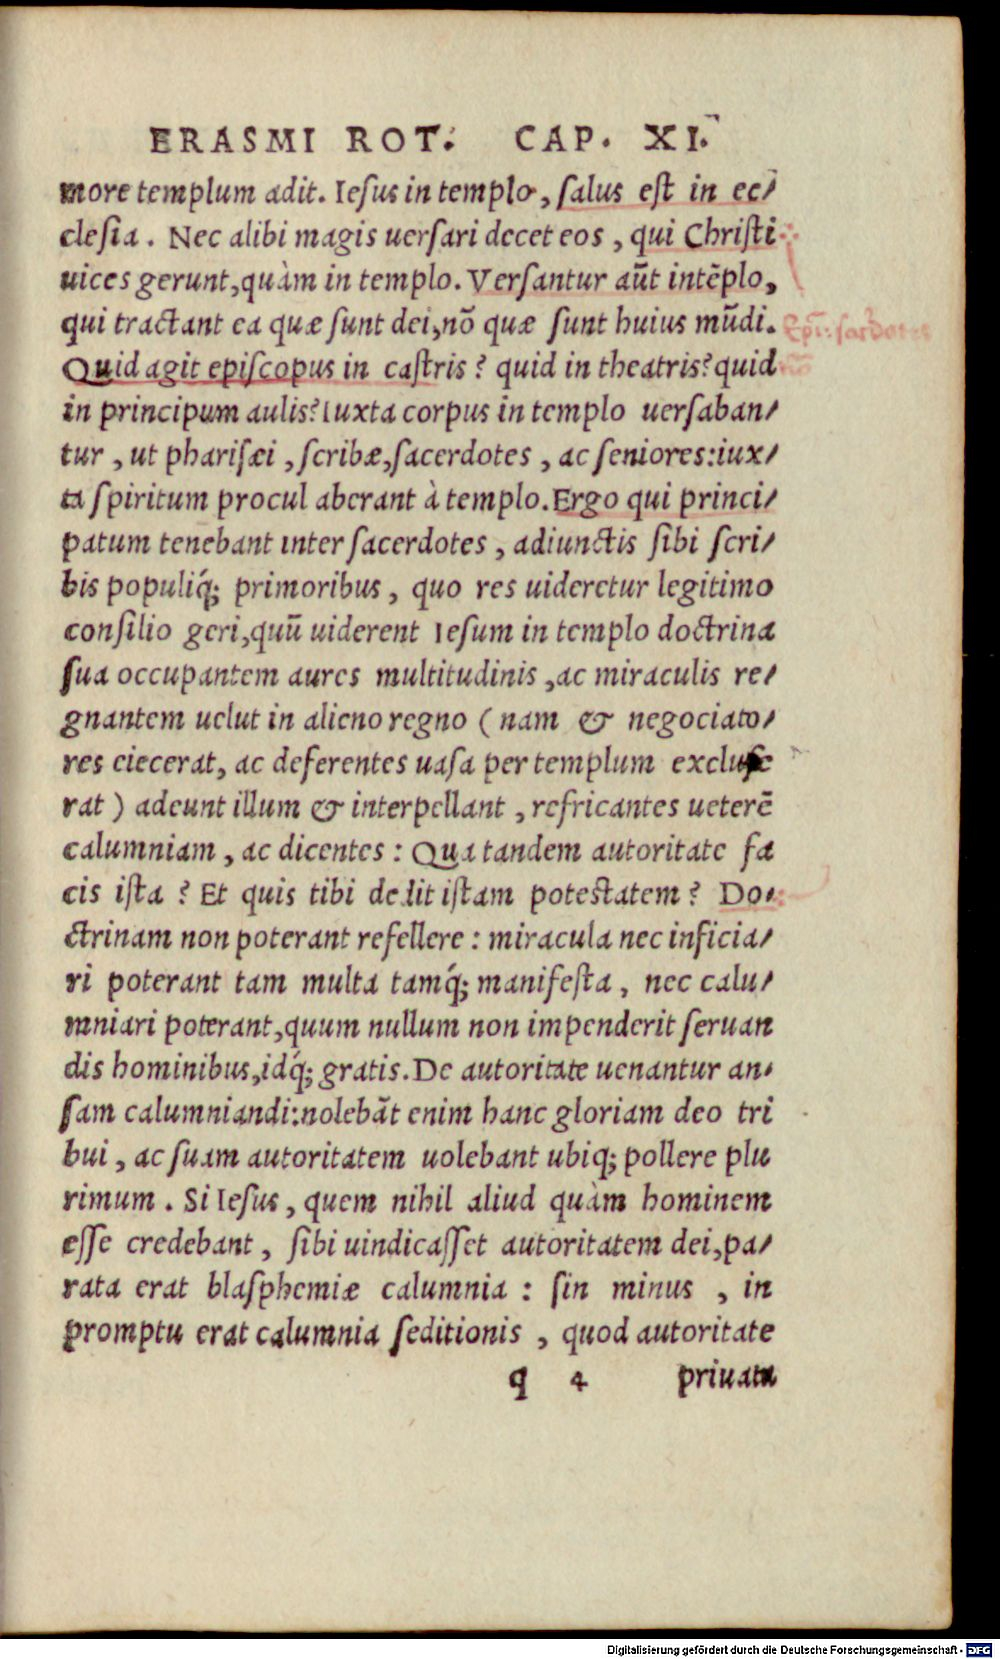 ERASMI ROT. CAP. XI.
more templum adit. Iesus in templo, salus est in ec/
clesia. Nec alibi magis uersari decet eos, qui Christi
uices gerunt, quàm in templo. Versantur aũt intẽplo,
qui tractant ea quæ sunt dei, nõ quæ sunt huius mũdi.
Quid agit episcopus in castris? quid in theatris? quid
in principum aulis? Iuxta corpus in templo uersaban/
tur, ut pharisæi, scribæ, sacerdotes, ac seniores: iux/
ta spiritum procul aberant à templo. Ergo qui princi/
patum tenebant inter sacerdotes, adiunctis sibi scri/
bis populiq́; primoribus, quo res uideretur legitimo
consilio geri, quũ uiderent Iesum in templo doctrina
sua occupantem aures multitudinis, ac miraculis re/
gnantem uelut in alieno regno (nam & negociato/
res eiecerat, ac deferentes uasa per templum excluse
rat) adeunt illum & interpellant, refricantes ueterẽ
calumniam, ac dicentes: Qua tandem autoritate fa
cis ista? Et quis tibi dedit istam potestatem? Do/
ctrinam non poterant refellere: miracula nec inficia/
ri poterant tam multa tamq́; manifesta, nec calu/
mniari poterant, quum nullum non impenderit seruan
dis hominibus, idq́; gratis. De autoritate uenantur an/
sam calumniandi: nolebãt enim hanc gloriam deo tri
bui, ac suam autoritatem uolebant ubiq; pollere plu
rimum. Si Iesus, quem nihil aliud quàm hominem
esse credebant, sibi uindicasset autoritatem dei, pa/
rata erat blasphemiæ calumnia: sin minus, in
promptu erat calumnia seditionis, quod autoritate
q 4 priuata
Digitalisierung gefördert durch die Deutsche Forschungsgemeinschaft - DFG